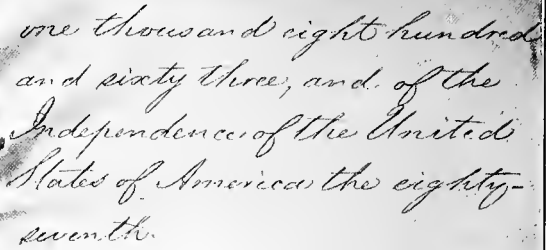 one thousand eight hundred
and sixty three, and of the
Independence of the United
States of America the eighty-
seventh.